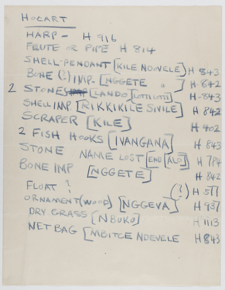 HOCART
HARP - H 916
FLUTE OR PIPE H 814
SHELL PENDANT [KILE NDEVELE] H 843
BONE (?) IMP. [NGGETE] H 842
2 STONES [LANDO] H 843
SHELL IMP [RIKKIKILE SIVILE] H 842
SCRAPER [KILE] H 402
2 FISH HOOKS [IVANGANA] H 843
STONE NAME LOST H 784
BONE IMP [NGGETE] H 842
FLOAT ? (?) H 511
ORNAMENT (WOOD) [NGGEVA] H 937
DRY GRASS [NBUKO] H 1113
NET BAG [MBITCE NDEVELE H 843